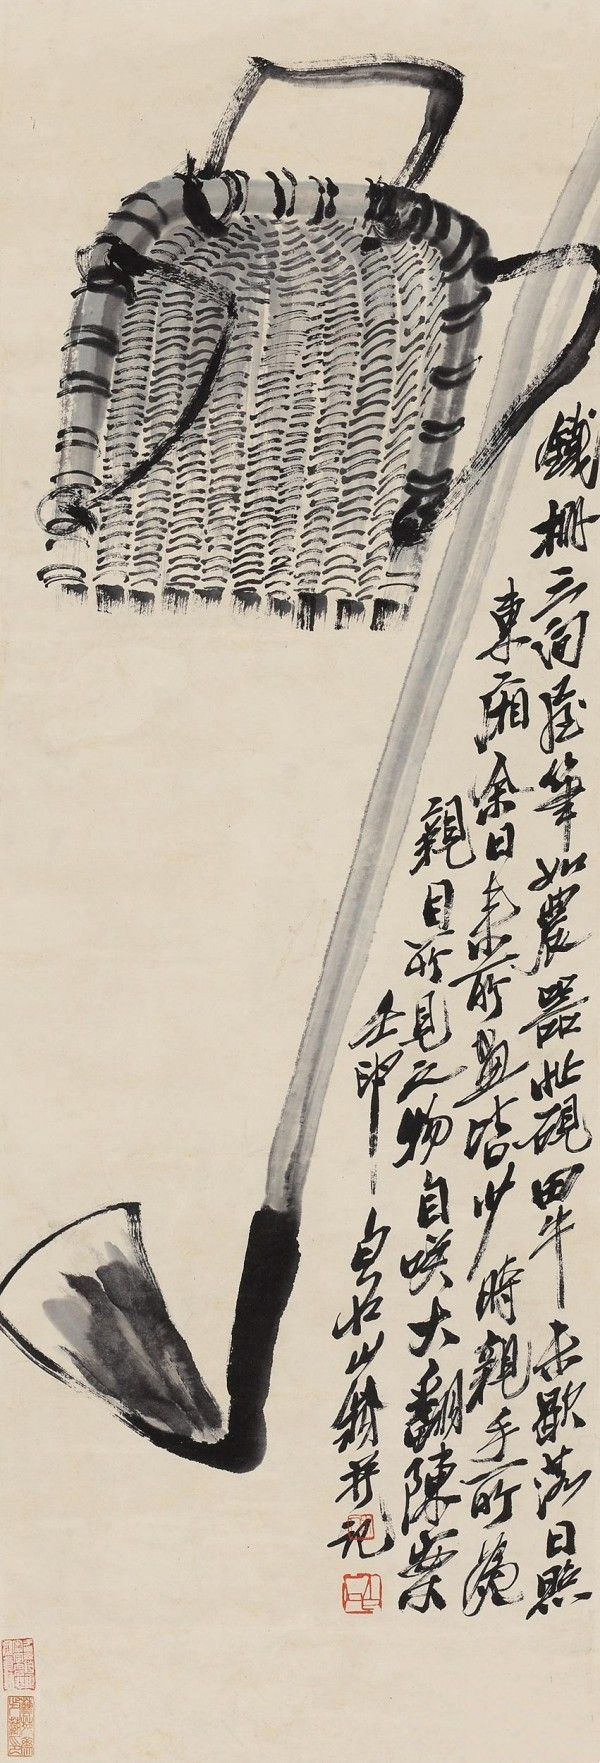 鐵柵三間屋筆如農器忙硯田牛未歇落日照
東廂余日來所畫皆少時親手所為
親目所見之物自笑大翻陳案
壬申
白石山翁并記